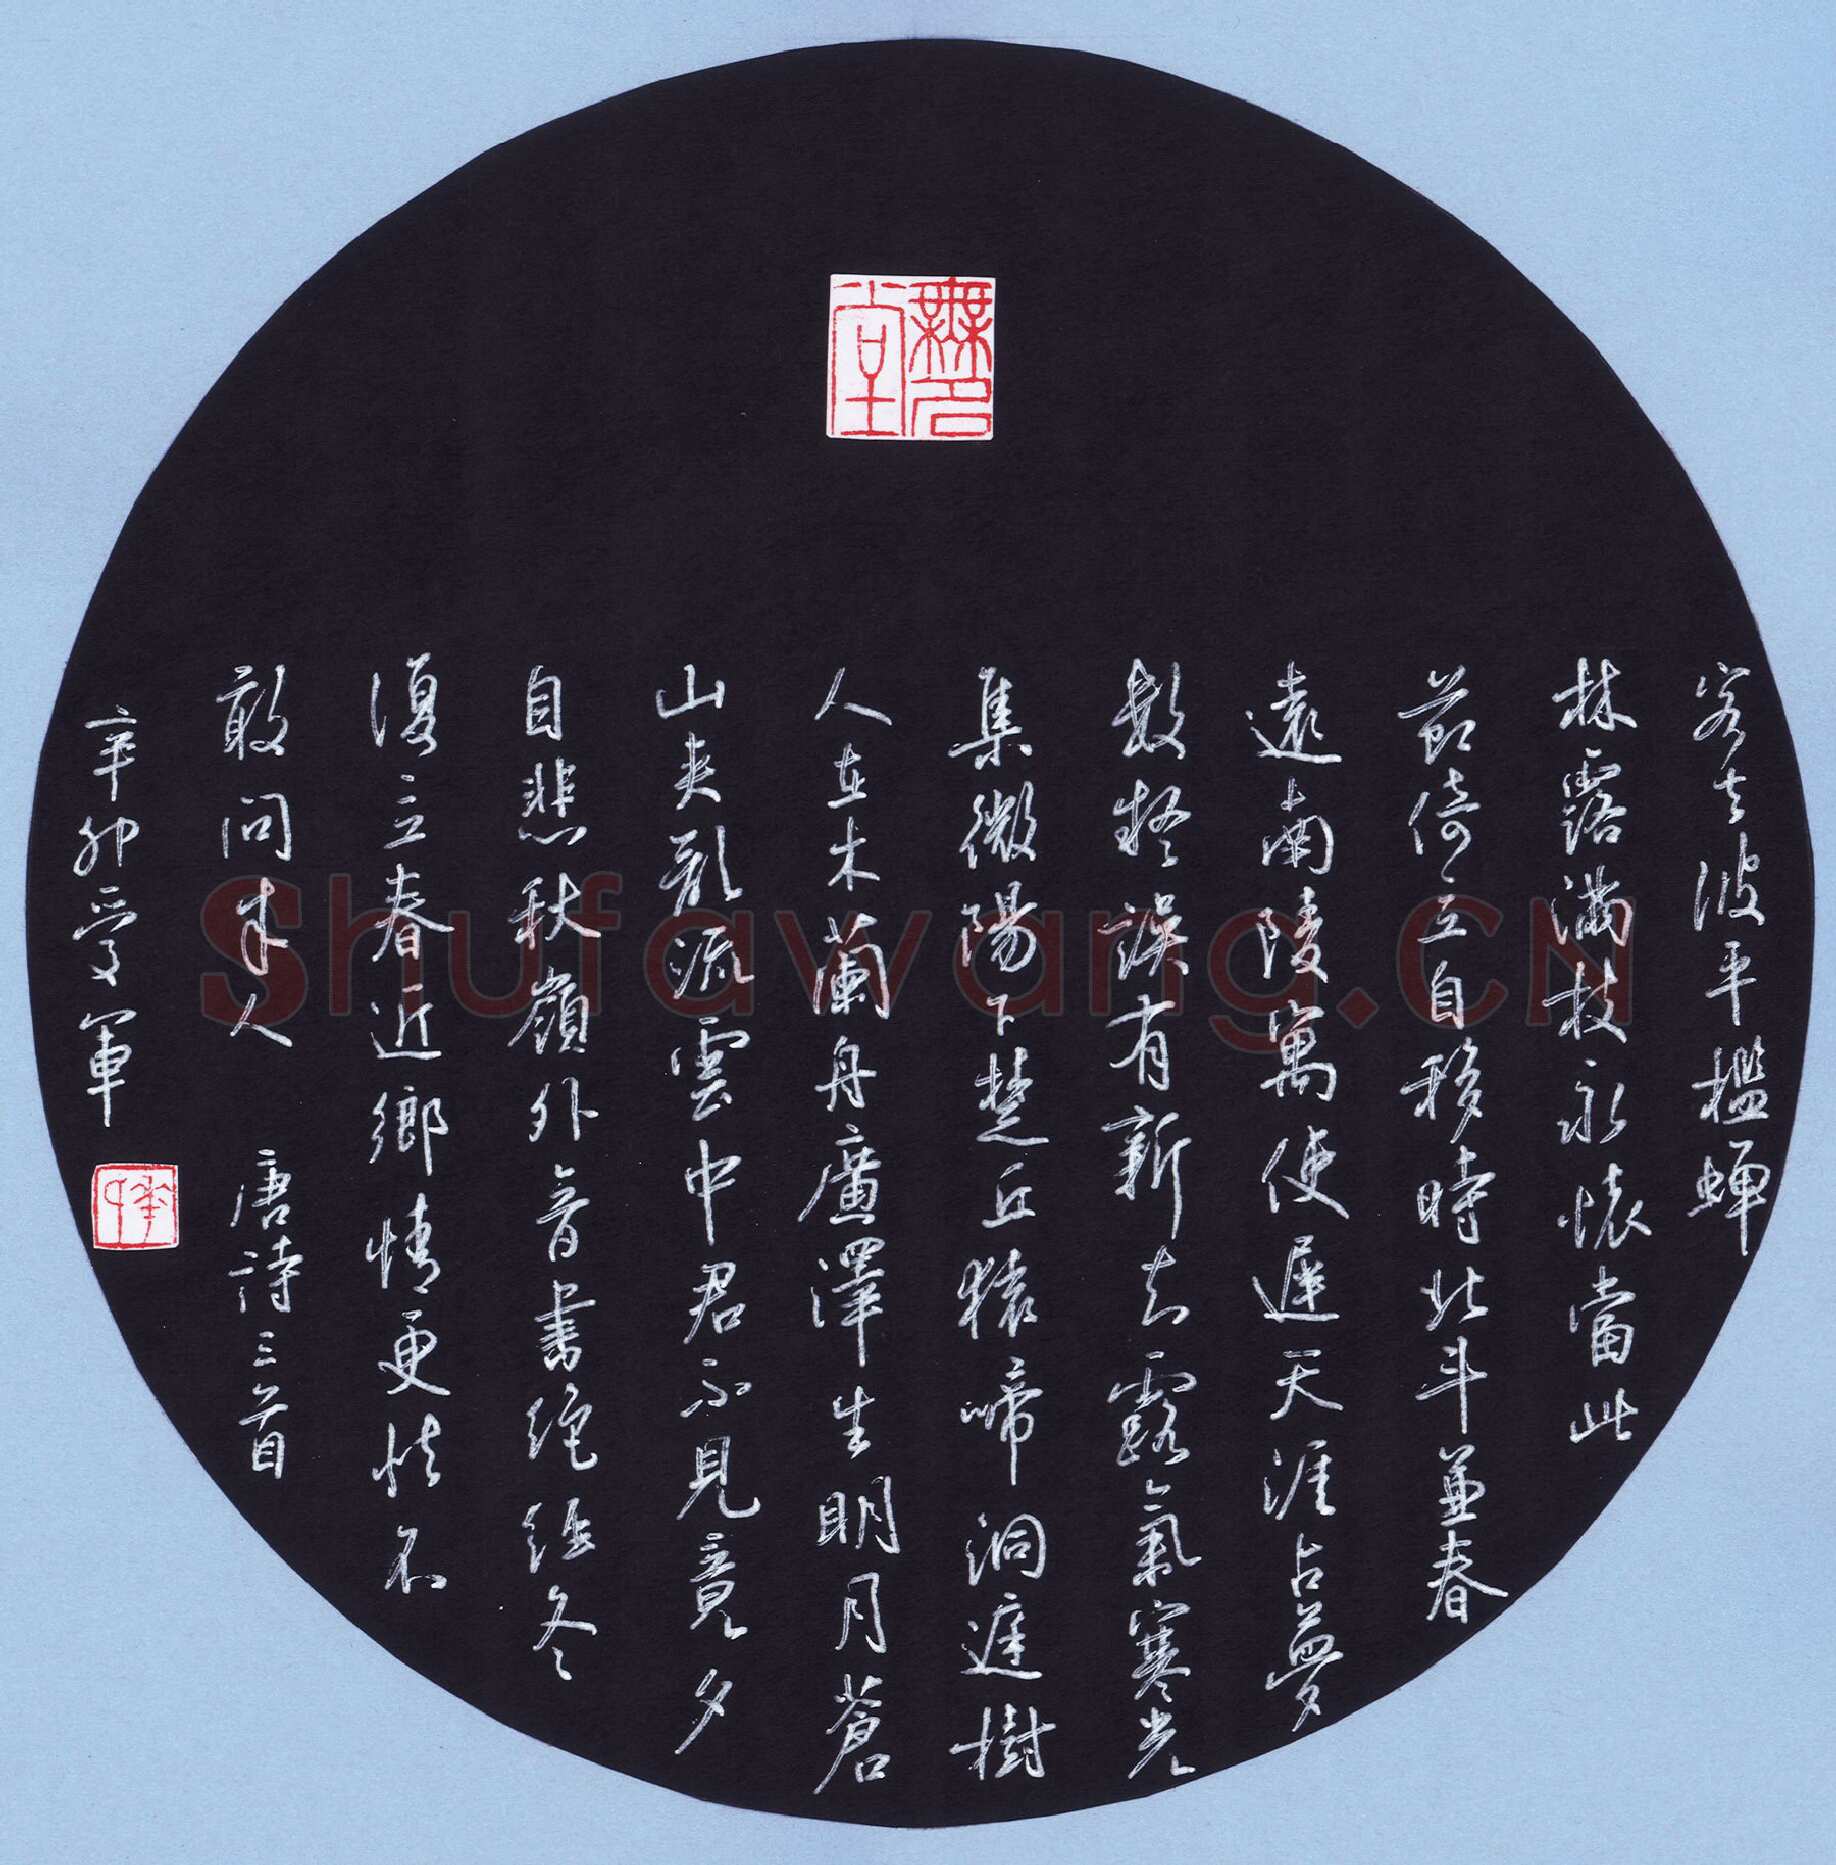 無名堂
客去波平檻蟬
休露滿枝永懷當此
節倚立自移時北斗兼春
遠南陵寓使遲天涯占夢
數疑誤有新知露氣寒光
集微陽下楚丘猿啼洞庭樹
人在木蘭舟廣澤生明月蒼
山夾亂流雲中君不見竟夕
自悲秋嶺外音書絕經冬
復立春近鄉情更怯不
敢問來人 唐詩三首
辛卯受軍
Shufawang.CN